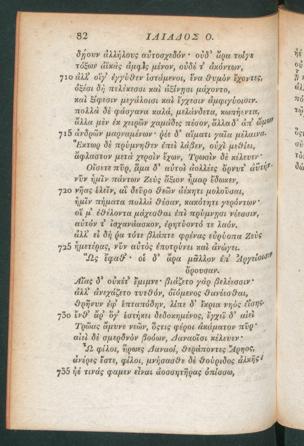 82 ΙΛΙΑΔΟΣ Ο.
δῄουν ἀλλήλους αὐτοσχεδόν· οὐδ' ἄρα τοίγε
τόξων ἀϊκὰς ἀμφὶς μένον, οὐδέ τ' ἀκόντων,
710 ἀλλ' οἵγ' ἐγγύθεν ἱστάμενοι, ἕνα θυμὸν ἔχοντες,
ὀξέσι δὴ πελέκεσσι καὶ ἀξίνῃσι μάχοντο,
καὶ ξίφεσιν μεγάλοισι καὶ ἔγχεσιν ἀμφιγύοισιν.
πολλὰ δὲ φάσγανα καλὰ, μελάνδετα, κωπήεντα,
ἄλλα μὲν ἐκ χειρῶν χαμάδις πέσον, ἄλλα δ' ἀπ' ὤμων
715 ἀνδρῶν μαρναμένων· ῥέε δ' αἵματι γαῖα μέλαινα.
Ἕκτωρ δὲ πρύμνηθεν ἐπεὶ λάβεν, οὐχὶ μεθίει,
ἄφλαστον μετὰ χερσὶν ἔχων, Τρωσὶν δὲ κέλευεν·
Οἴσετε πῦρ, ἅμα δ' αὐτοὶ ἀολλέες ὄρνυτ' ἀϋτήν·
νῦν ἡμῖν πάντων Ζεὺς ἄξιον ἦμαρ ἔδωκεν,
720 νῆας ἑλεῖν, αἳ δεῦρο θεῶν ἀέκητι μολοῦσαι,
ἡμῖν πήματα πολλὰ θέσαν, κακότητι γερόντων·
οἵ μ' ἐθέλοντα μάχεσθαι ἐπὶ πρύμνῃσι νέεσσιν,
αὐτόν τ' ἰσχανάασκον, ἐρητύοντό τε λαόν.
ἀλλ' εἰ δή ῥα τότε βλάπτε φρένας εὐρύοπα Ζεὺς
725 ἡμετέρας, νῦν αὐτὸς ἐποτρύνει καὶ ἀνώγει.
Ὣς ἔφαθ'· οἱ δ' ἄρα μᾶλλον ἐπ' Ἀργείοισιν
ὄρουσαν.
Αἴας δ' οὐκέτ' ἔμιμνε· βιάζετο γὰρ βελέεσσιν·
ἀλλ' ἀνεχάζετο τυτθὸν, ὀϊόμενος θανέεσθαι,
θρῆνυν ἐφ' ἑπταπόδην, λίπε δ' ἴκρια νηὸς ἐΐσης·
730 ἔνθ' ἄρ' ὅγ' ἑστήκει δεδοκημένος, ἔγχεϊ δ' αἰεὶ
Τρῶας ἄμυνε νεῶν, ὅςτις φέροι ἀκάματον πῦρ·
αἰεὶ δὲ σμερδνὸν βοόων, Δαναοῖσι κέλευεν·
Ὦ φίλοι, ἥρωες Δαναοὶ, θεράποντες Ἄρηος,
ἀνέρες ἔστε, φίλοι, μνήσασθε δὲ θούριδος ἀλκῆς·
735 ἠέ τινάς φαμεν εἶναι ἀοσσητῆρας ὀπίσσω,